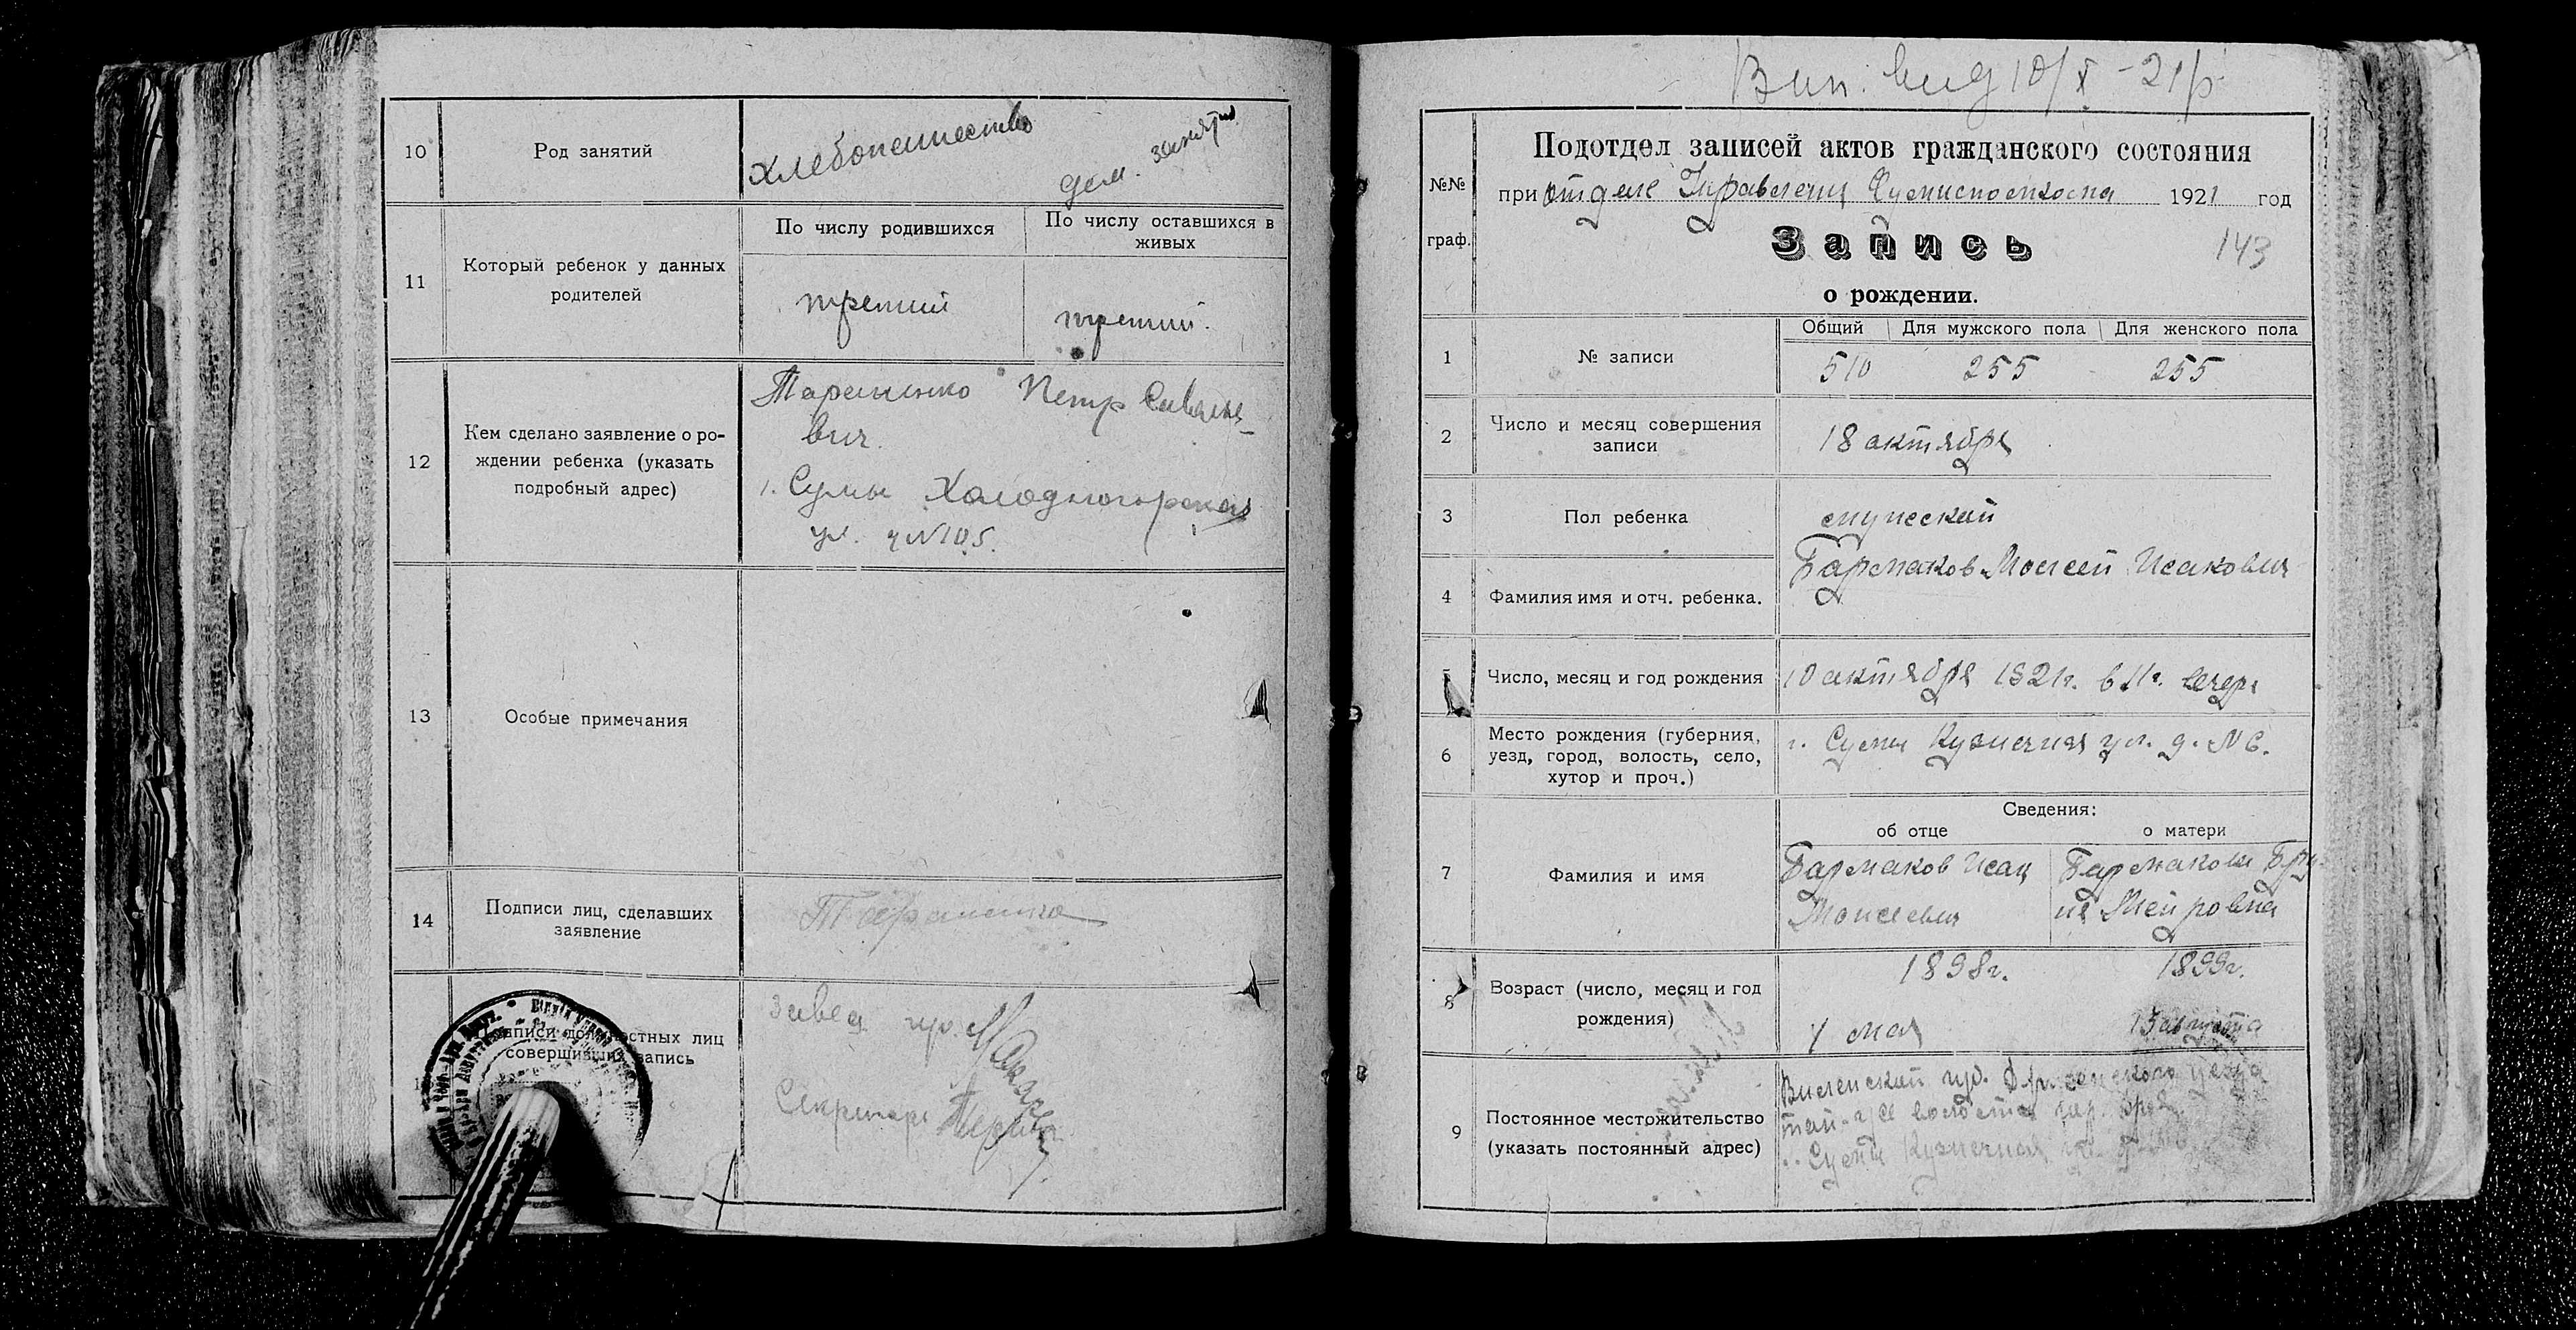 10
Род занятий
Хлебопешество
дом. занят
11
Который ребенок у данных
родителей
По числу родившихся
По числу оставшихся в
живых
третий
третий.
12
Кем сделано заявление о ро-
ждении ребенка (указать
подробный адрес)
Тараненко Петр
вич.
г. Сумы Холодногорская
ул. №105.
13
Особые примечания
14
Подписи лиц, сделавших
заявление
Тараненко
Подписи должностных лиц
совершивших запись
Завед.
Секретарь
10/X - 21 р
№№
граф.
Подотдел записей актов гражданского состояния
при отделе Управления 1921 год
Запись
143
о рождении.
1
№ записи
Общий
Для мужского пола
Для женского пола
510
255
255
2
Число и месяц совершения
записи
18 актября
3
Пол ребенка
мужеский
4
Фамилия имя и отч. ребенка.
Бармаков Моисей Исакович
5
Число, месяц и год рождения
10 актября 1921г. в 11 ч. вечера
6
Место рождения (губерния,
уезд, город, волость, село,
хутор и проч.)
г. Сумы Кузнечная ул. д. № 6.
7
Фамилия и имя
Сведения:
об отце
о матери
Бармаков Исак
Моисеевич
Бармакова
Мейровна
8
Возраст (число, месяц и год
рождения)
1898г.
мая
1899г.
15 августа
9
Постоянное местожительство
(указать постоянный адрес)
Виленский
г. Сумы Кузнечная